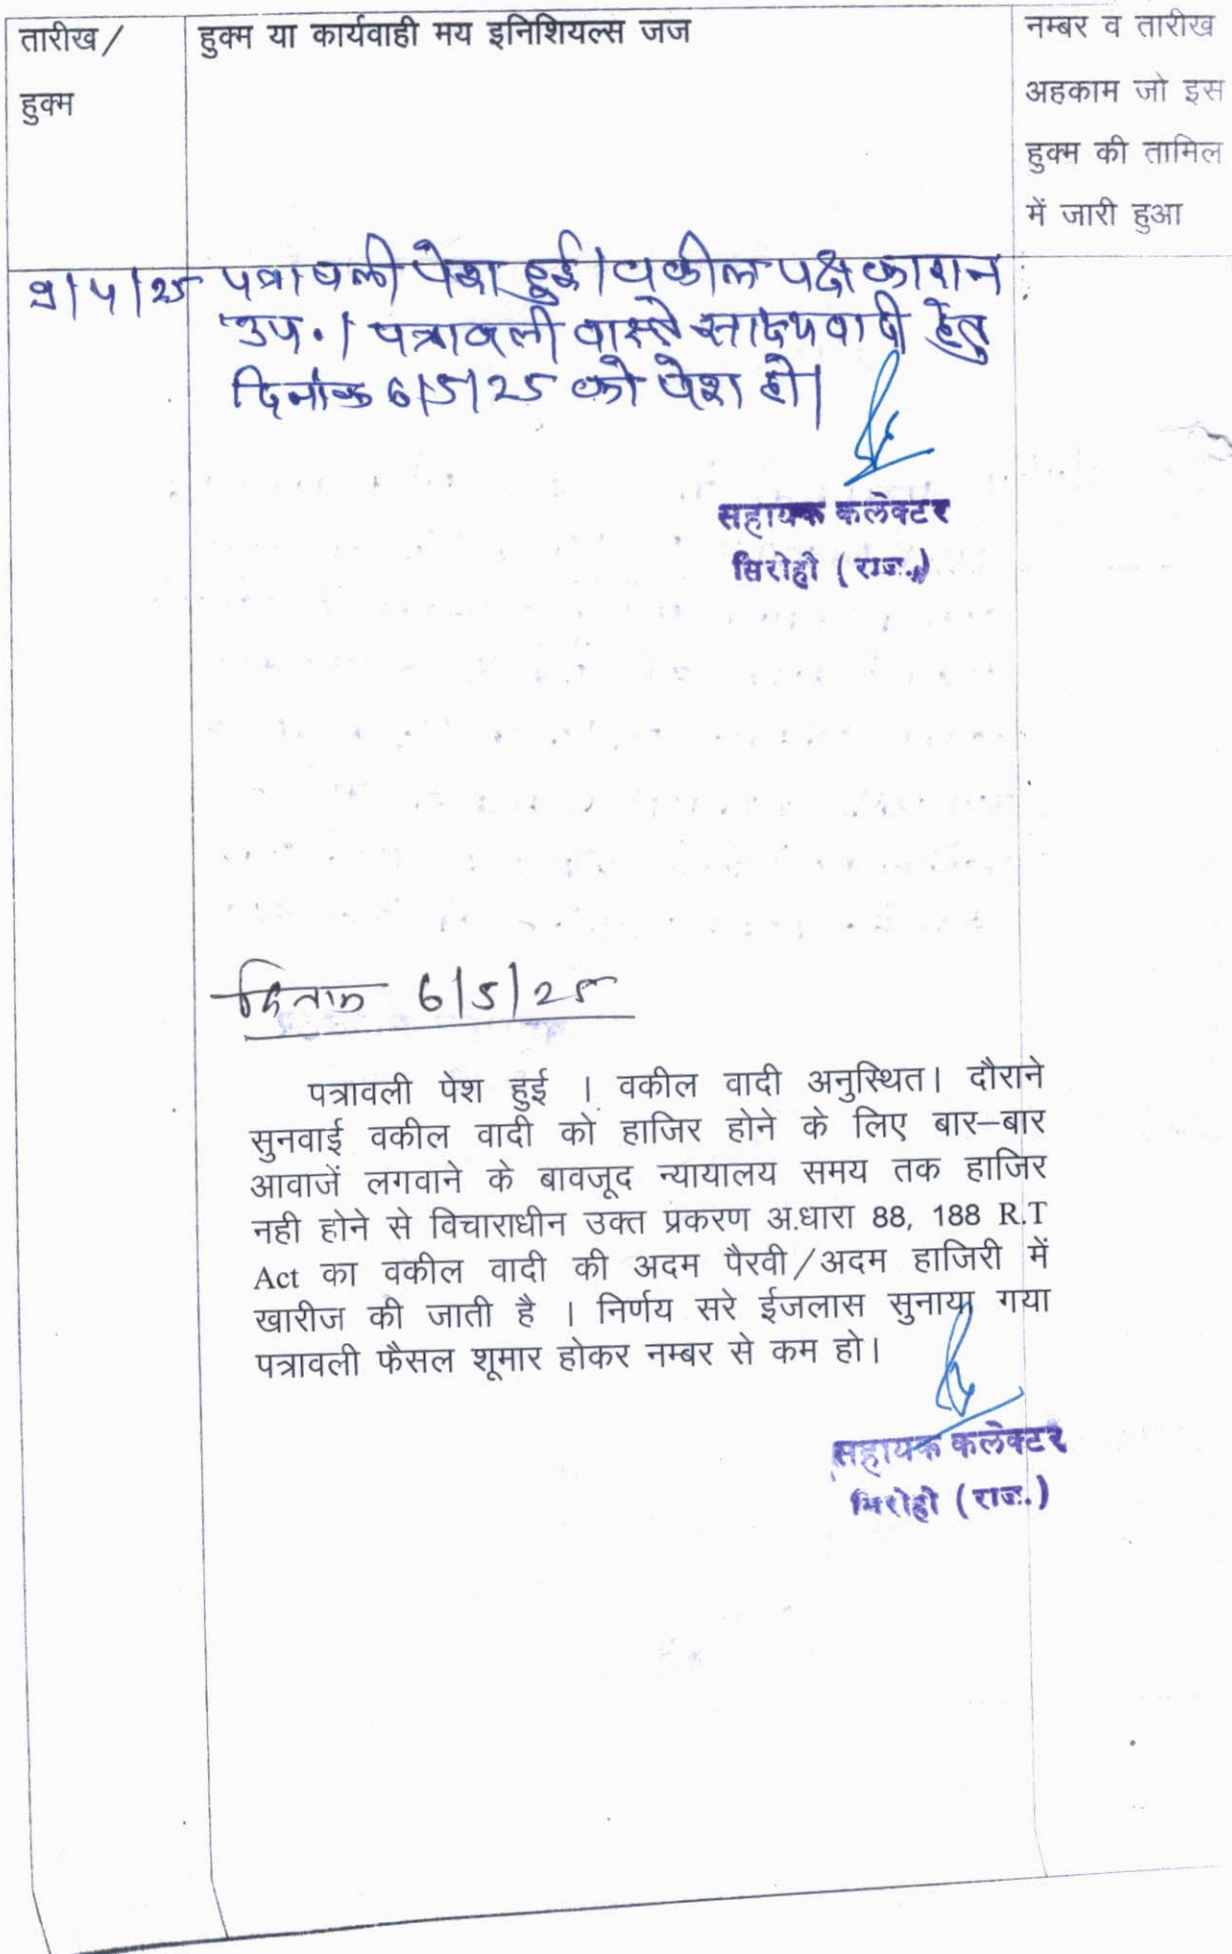 तारीख/
हुक्म
हुक्म या कार्यवाही मय इनिशियल्स जज
नम्बर व तारीख
अहकाम जो इस
हुक्म की तामिल
में जारी हुआ
9/4/25 पत्रावली पेश हुई। वकील पक्षकारान
उप.। पत्रावली वास्ते साक्ष्य वादी हेतु
दिनांक 6/5/25 को पेश हो।
सहायक कलेक्टर
सिरोही (राज.)
दिनांक 6/5/25
पत्रावली पेश हुई । वकील वादी अनुस्थित। दौराने
सुनवाई वकील वादी को हाजिर होने के लिए बार–बार
आवाजें लगवाने के बावजूद न्यायालय समय तक हाजिर
नही होने से विचाराधीन उक्त प्रकरण अ.धारा 88, 188 R.T
Act का वकील वादी की अदम पैरवी/अदम हाजिरी में
खारीज की जाती है । निर्णय सरे ईजलास सुनाया गया
पत्रावली फैसल शूमार होकर नम्बर से कम हो।
सहायक कलेक्टर
सिरोही (राज.)